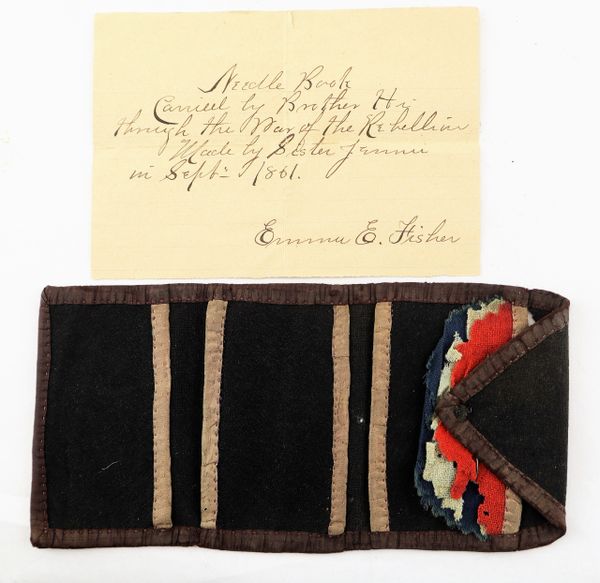 Needle Book
Carried by Brother Hi
through the War of the Rebellion
Made by Sister Jennie
in Sept- 1861.
Emma E. Fisher